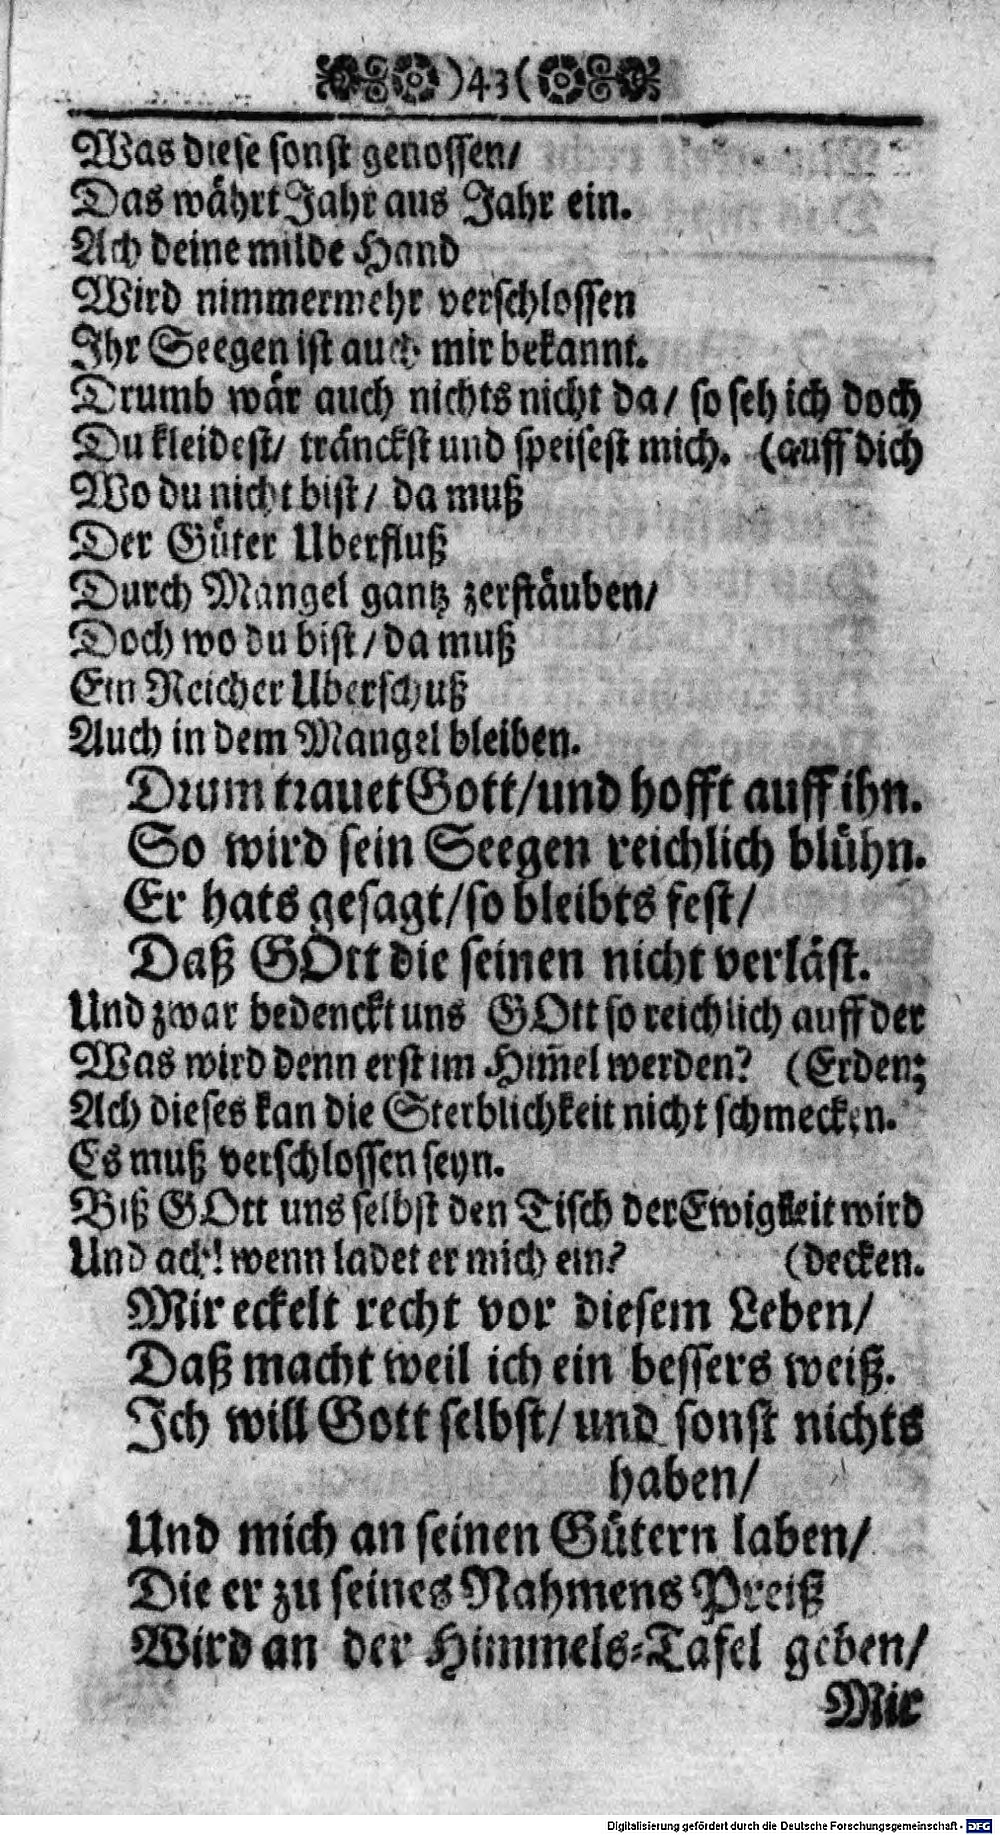 )43(
Was diese sonst genossen/
Das währt Jahr aus Jahr ein.
Ach deine milde Hand
Wird nimmermehr verschlossen
Ihr Seegen ist auch mir bekannt.
Drumb wär auch nichts nicht da/ so seh ich doch
Du kleidest/ tränckst und speisest mich. (auff dich
Wo du nicht bist/ da muß
Der Güter Uberfluß
Durch Mangel gantz zerstäuben/
Doch wo du bist/ da muß
Ein Reicher Uberschuß
Auch in dem Mangel bleiben.
Drum trauet Gott/und hofft auff ihn.
So wird sein Seegen reichlich blühn.
Er hats gesagt/so bleibts fest/
Daß GOtt die seinen nicht verläst.
Und zwar bedenckt uns GOtt so reichlich auff der
Was wird denn erst im Him̃el werden? (Erden;
Ach dieses kan die Sterblichkeit nicht schmecken.
Es muß verschlossen seyn.
Biß GOtt uns selbst den Tisch der Ewigkeit wird
Und ach! wenn ladet er mich ein? (decken.
Mir eckelt recht vor diesem Leben/
Daß macht weil ich ein bessers weiß.
Ich will Gott selbst/ und sonst nichts
haben/
Und mich an seinen Gütern laben/
Die er zu seines Nahmens Preiß
Wird an der Himmels-Tafel geben/
Mir
Digitalisierung gefördert durch die Deutsche Forschungsgemeinschaft - DFG